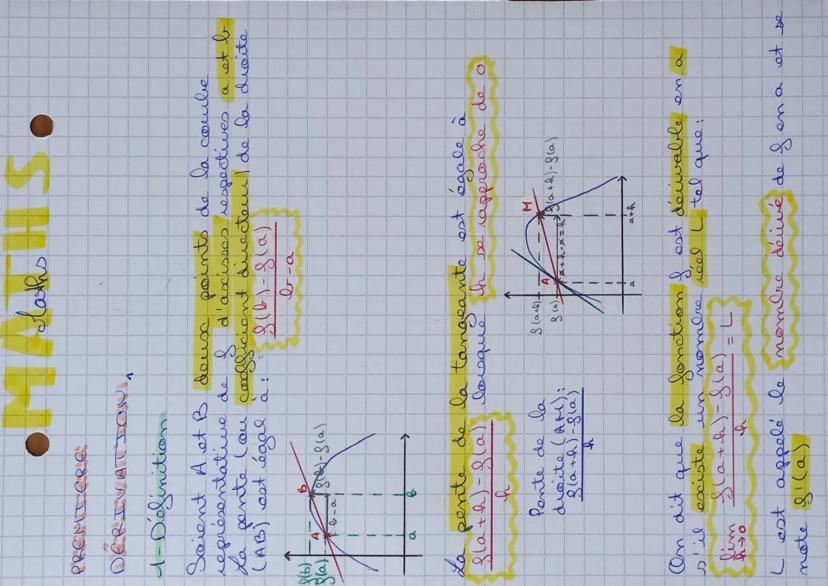 MATHS
Maths
PREMIERE
DÉRIVATION
1-Définition
Soient A et B deux points de la courbe
représentative de f d'axisses respectives a et b
La pente (ou coefficient directeur) de la droite
(AB) est égale à :
f(b)-f(a)
b-a
f(b)
f(a)
A
B
f(b)-f(a)
b-a
a
b
La pente de la tangeante est égale à
f(a+h)-f(a)
h
lorsque h se rapproche de 0
Pente de la
droite (AM):
f(a+h)-f(a)
h
f(a+h)
f(a)
A
M
f(a+h)-f(a)
a+h-a=h
a
a+h
On dit que la fonction f est dérivable en a
s'il existe un nombre réel L tel que:
lim f(a+h)-f(a) = L
h→0 h
L est appelé le nombre dérivé de f en a et se
note f'(a)